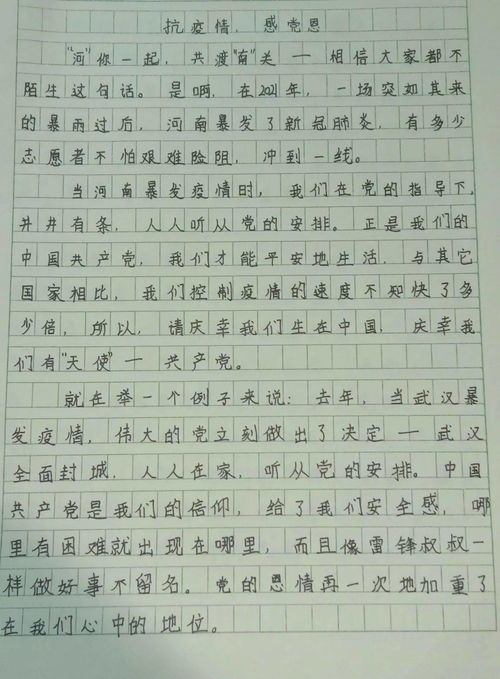 抗疫情，感党恩
"河"你一起，共渡"南"关一相信大家都不
陌生这句话。是啊，在2021年，一场突如其来
的暴雨过后，河南暴发了新冠肺炎，有多少
志愿者不怕艰难险阻，冲到一线。
当河南暴发疫情时，我们在党的指导下，
井井有条，人人听从党的安排。正是我们的
中国共产党，我们才能平安地生活，与其它
国家相比，我们控制疫情的速度不知快了多
少倍，所以，请庆幸我们生在中国，庆幸我
们有"天使"一共产党。
就在举一个例子来说：去年，当武汉暴
发疫情，伟大的党立刻做出了决定一武汉
全面封城，人人在家，听从党的安排。中国
共产党是我们的信仰，给了我们安全感，哪
里有困难就出现在哪里，而且像雷锋叔叔一
样做好事不留名。党的恩情再一次地加重了
在我们心中的地位。